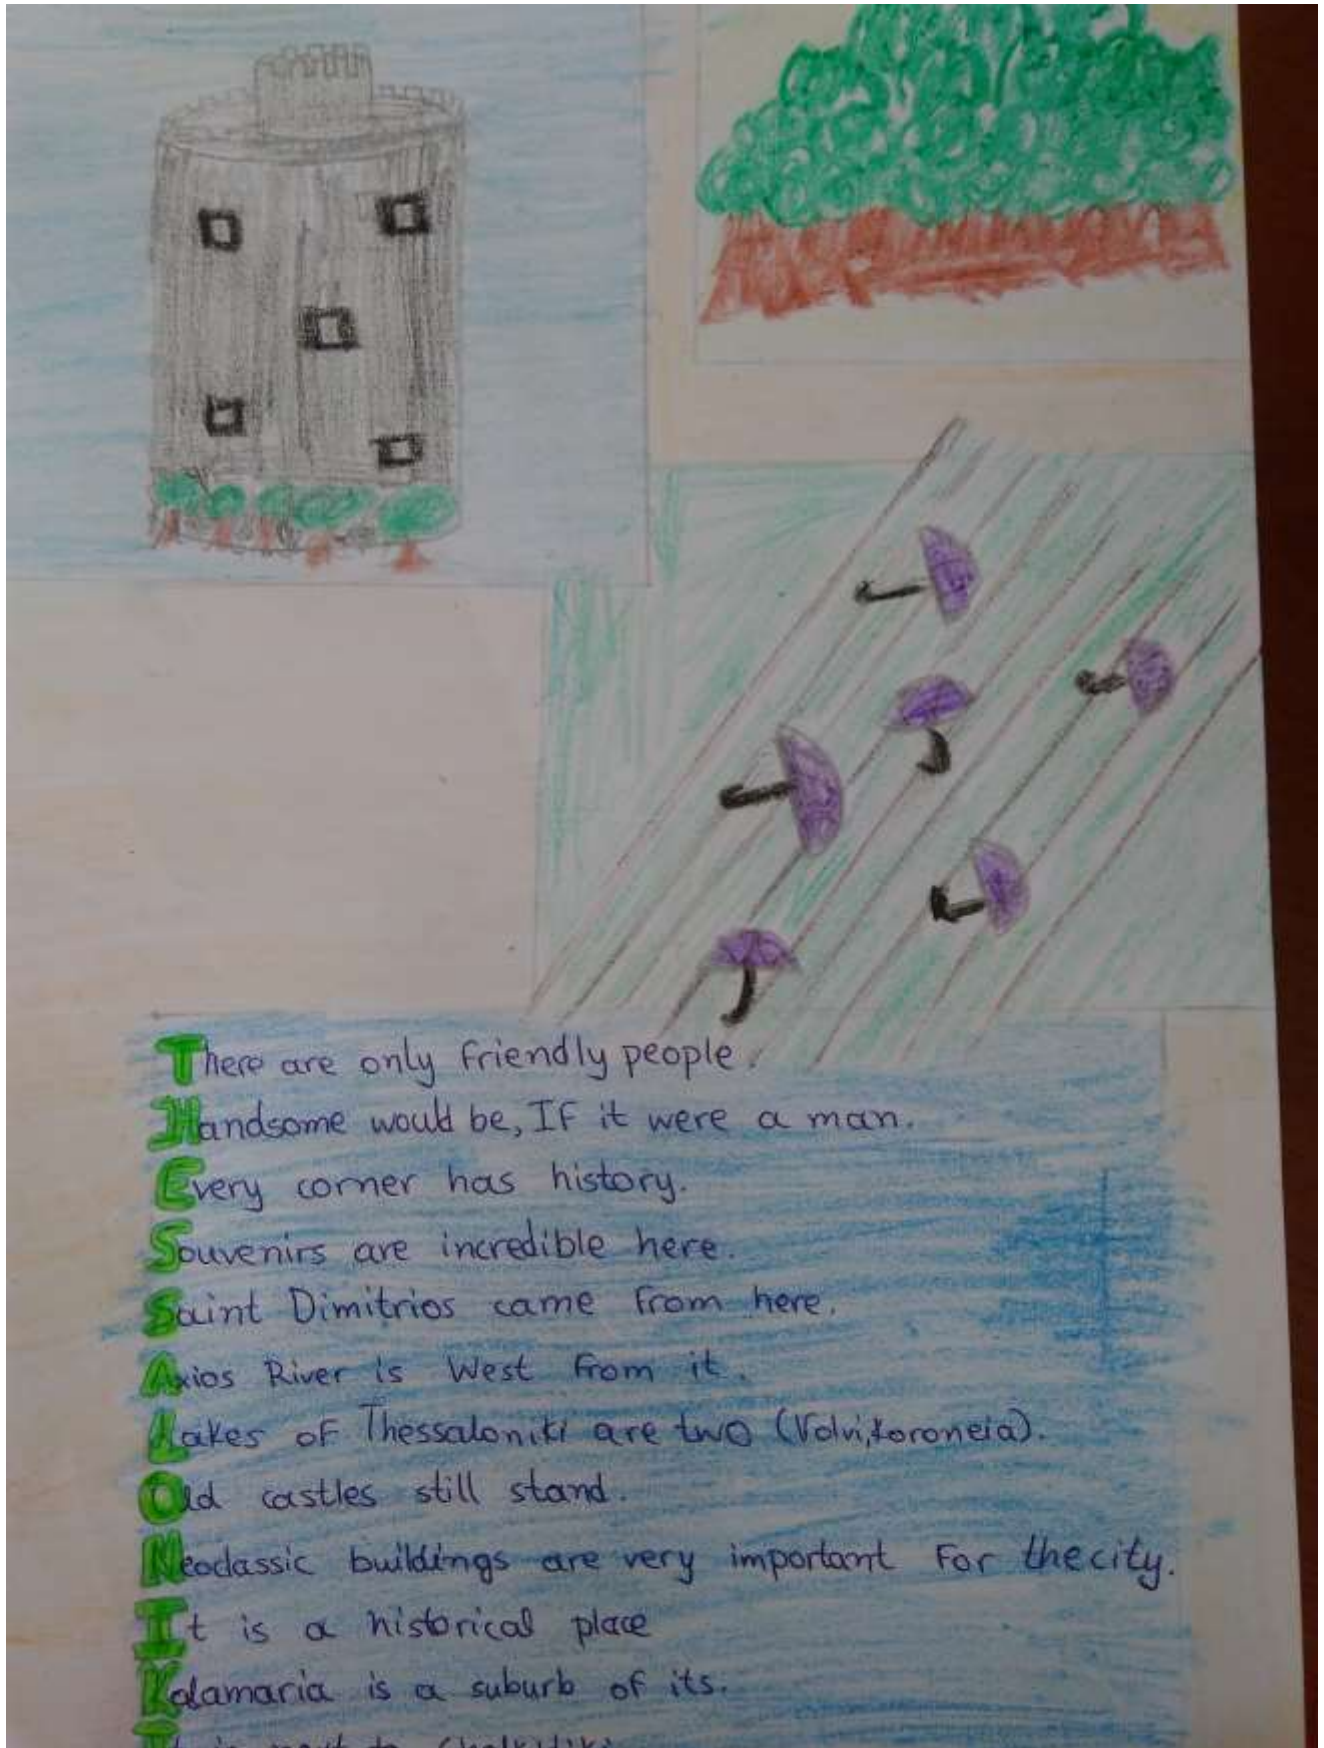 There are only friendly people.
Handsome would be, If it were a man.
Every corner has history.
Souvenirs are incredible here.
Saint Dimitrios came from here.
Axios River is West from it.
Lakes of Thessaloniki are two (Volvi, Koroneia).
Old castles still stand.
Neoclassic buildings are very important for the city.
It is a historical place
Kalamaria is a suburb of its.
It is next to Chalkidiki